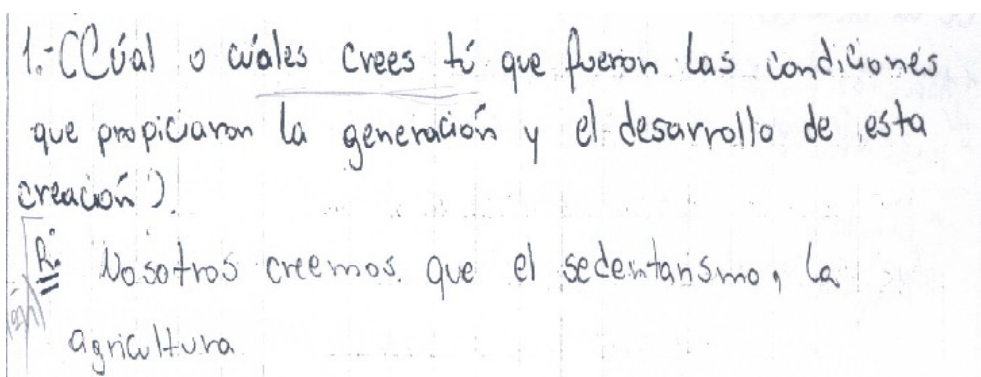 1.- (Cúal o cuáles crees tú que fueron las condiciones
que propiciaron la generación y el desarrollo de esta
creación).
R: Nosotros creemos. que el sedentarismo, la
agricultura